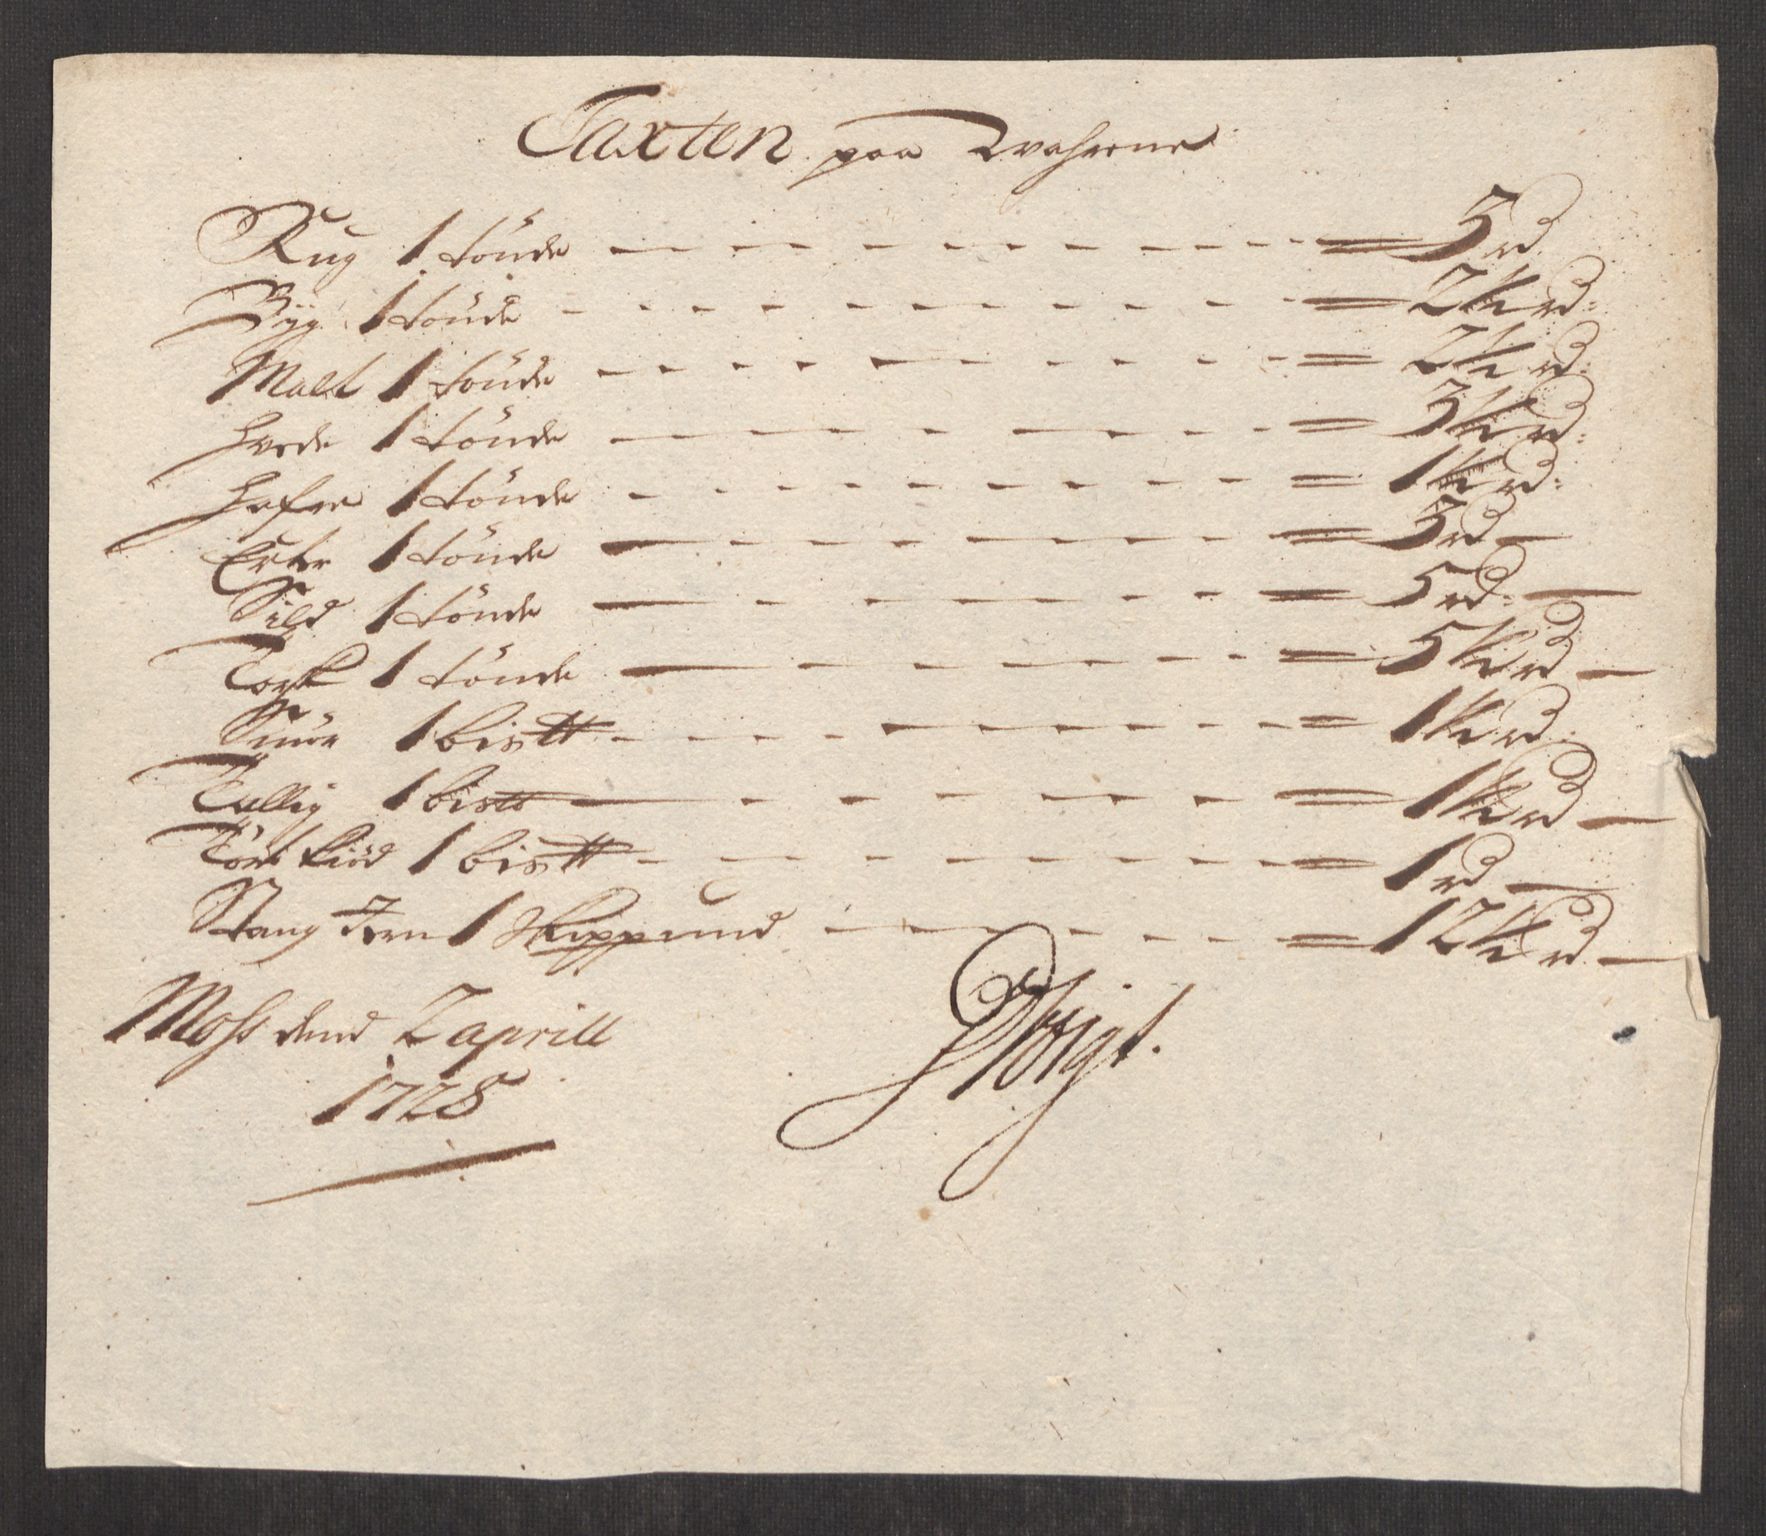 Taxten paa Wahrene
Rug 1 tönde — 3 rd
Byg 1 tönde — 2½ rd:
Malt 1 tönde — 2½ rd:
Hvede 1 tönde — 3½ rd:
Hafre 1 tönde — 1½ rd:
Erter 1 tönde — 3 rd —
Sild 1 tönde — 5 rd: —
Torsk 1 tönde — 5½ rd —
Smör 1 bismtt — 1½ rd:
Tallig 1 bismtt — 1½ rd —
Tört kiöd 1 bismtt — 1 rd —
Stang Jern 1 Skippund — 12½ rd —
Moss dend 2 aprill
1728
Voigt.